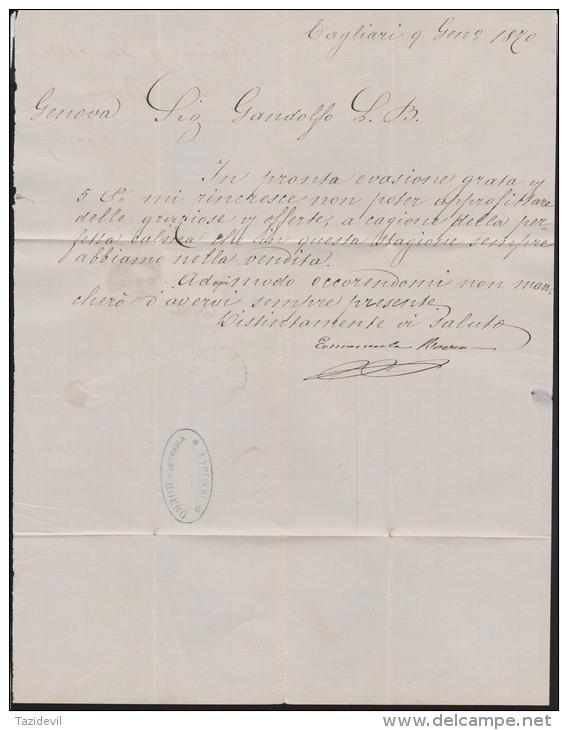 Cagliari 9 Gen.e 1870
Genova Sig Gandolfo L. B.
In pronta evasione grata v/
5 Co mi rincresce non poter approfittare
delle graziose v/ offerte, a cagione della per=
fetta calma che in questa stagione sempre
abbiamo nella vendita.
Ad ogni modo occorrendomi non man=
cherò d'avervi sempre presente
Distintamente vi Saluto
Emmanuele
CAGLIARI
Tazidevil
www.delcampe.net